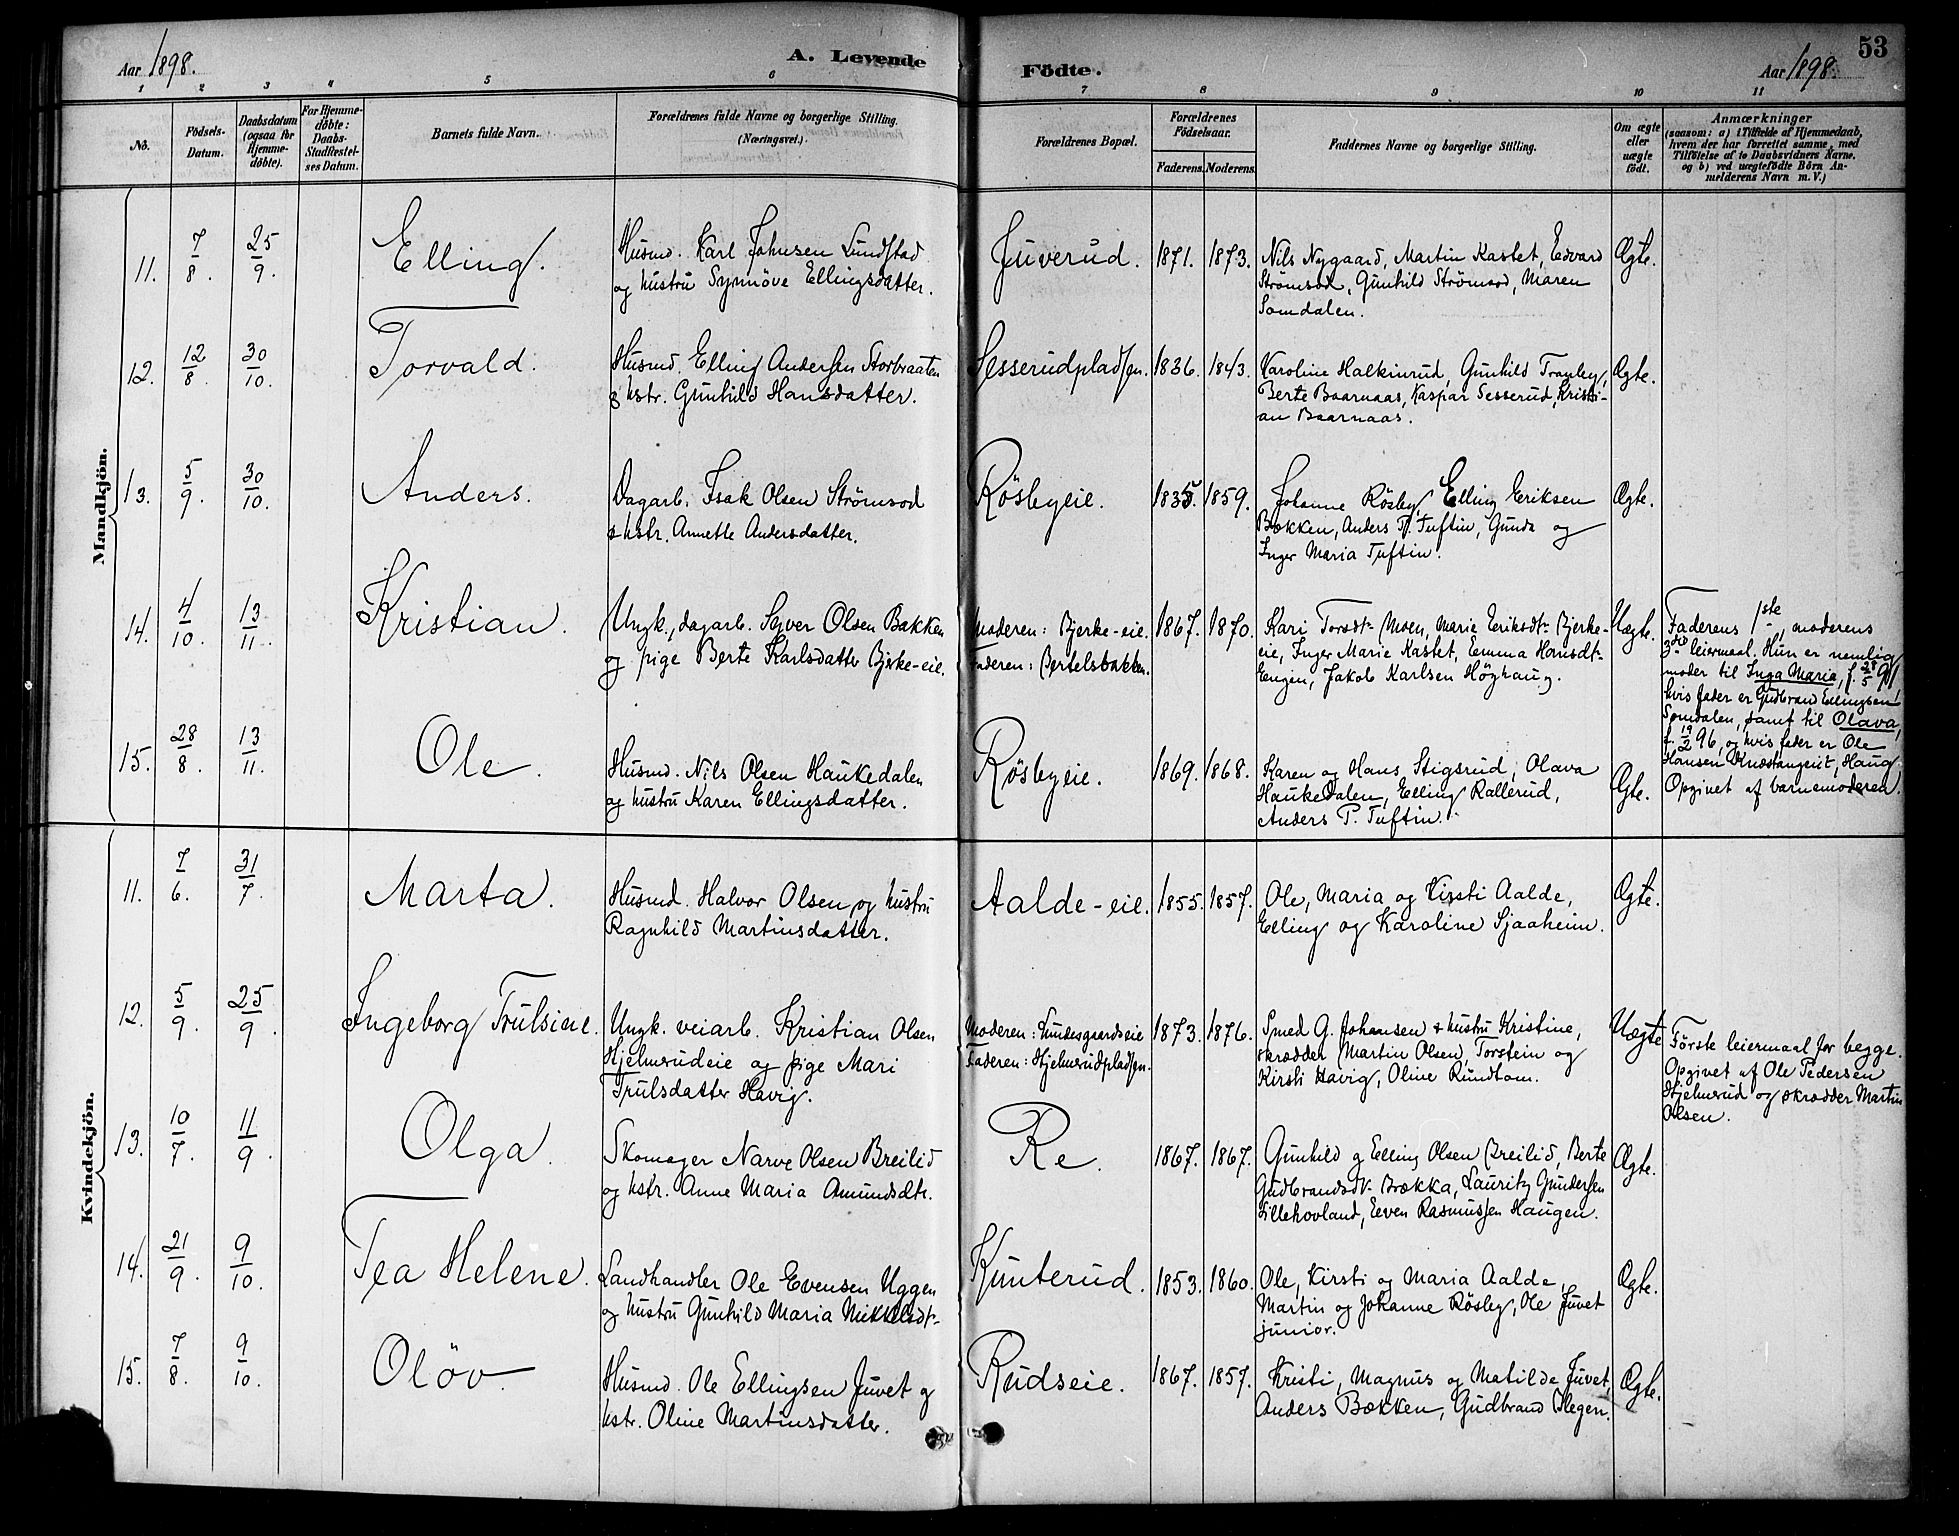 Aar 1898.
A. Levende
Födte.
Aar 1898.
53
1 2 3 4 5 6 7 8 9 10 11
No.
Födsels-
Datum.
Daabsdatum
(ogsaa for
Hjemme-
döbte).
For Hjemme-
döbte:
Daabs-
Stadfæstel-
ses Datum.
Barnets fulde Navn.
Forældrenes fulde Navne og borgerlige Stilling
(Næringsvei.)
Forældrenes Bopæl.
Forældrenes
Födselsaar.
Faderens. Moderens.
Faddernes Navne og borgerlige Stilling.
Om ægte
eller
uægte
født.
Anmærkninger
(saasom: a) i Tilfælde af Hjemmedaab,
hvem der har forrettet samme, med
Tilföielse af to Daabsvidners Navne.
og b) ved uægtefödte Börn An-
melderens Navn m. V.)
Mandkjön.
11. 7/8. 25/9. Elling.
Husmd. Karl Johnsen Lundstad
og hustru Synnöve Ellingsdatter.
Juverud. 1871. 1873.
Nils Nygaard, Martin Kastet, Edvard
Strömsod, Gunhild Strömsod, Maren
Somdalen.
Ægte.
12. 12/8. 30/10. Torvald.
Husmd. Elling Andersen Storbraaten
& hstr. Gunhild Hansdatter.
Sesserudpladsen. 1836. 1843.
Karoline Halkinrud, Gunhild Tranby,
Berte Baarnaas, Kaspar Sesserud, Kristi-
an Baarnaas.
Ægte.
13. 5/9. 30/10. Anders.
Dagarb. Isak Olsen Strömsod
& hstr. Annette Andersdatter.
Rösbyeie. 1835. 1859.
Johanne Rösby, Elling Eriksen
Bækken, Anders P. Tuftin, Gunda og
Inger Maria Tuftin.
Ægte.
14. 4/10. 13/11. Kristian.
Ungk., dagarb. Syver Olsen Bakken
og pige Berte Karlsdatter Bjerke-eie.
Moderen: Bjerke-eie.
Faderen: Bertelsbakken.
1867. 1870.
Kari Torsdt- Moen, Marie Eriksdt- Bjerke-
eie, Inger Marie Kastet, Emma Hansdt-
Engen, Jakob Karlsen Höghaug.
Uægte.
Faderens 1ste, moderens
3die leiermaal. Hun er nemlig
moder til Inga Maria, f. 28/5 91,
hvis fader er Gudbrand Ellingsen
Somdalen, samt til Olava,
f. 19/2 96, og hvis fader er Ole
Hansen Knæstangeiet, Haug.
Opgivet af barnemoderen.
15. 28/8. 13/11. Ole.
Husmd. Nils Olsen Haukedalen
og hustru Karen Ellingsdatter.
Rösbyeie. 1869. 1868.
Karen og Hans Stigsrud, Olava
Haukedalen, Elling Rallerud,
Anders P. Tuftin.
Ægte.
Kvindekjön.
11. 7/6. 31/7. Marta.
Husmd. Halvor Olsen og hustru
Ragnhild Martinsdatter.
Aalde-eie. 1855. 1857.
Ole, Maria og Kirsti Aalde,
Elling og Karoline Sjaaheim.
Ægte.
12. 5/9. 25/9. Ingeborg Trulsine.
Ungk. veiarb. Kristian Olsen
Hjelmerudeie og pige Mari
Trulsdatter Havig.
Moderen: Lundesgaardseie
Faderen: Hjelmerudpladsen.
1873. 1876.
Smed G. Johansen & hustru Kristine,
skrædder Martin Olsen, Torstein og
Kirsti Havig, Oline Rundtom.
Uægte
Förste leiermaal for begge.
Opgivet af Ole Pedersen
Hjelmerud og skrædder Martin
Olsen.
13. 10/7. 11/9. Olga.
Skomager Narve Olsen Breilid
og hstr. Anne Maria Amundsdtr.
Re. 1867. 1867.
Gunhild og Elling Olsen Breilid, Berte
Gudbrandsdt- Brække, Lauritz Gundersen
Lillehovland, Even Rasmussen Haugen.
Ægte.
14. 21/9. 9/10. Tea Helene.
Landhandler Ole Evensen Uggen
og hustru Gunhild Maria Mikkelsdt-
Kunterud. 1853. 1860.
Ole, Kirsti og Maria Aalde,
Martin og Johanne Rösby, Ole Juvet
junior.
Ægte.
15. 7/8. 9/10. Olöv.
Husmd. Ole Ellingsen Juvet og
hstr. Oline Martinsdatter.
Rudseie. 1867. 1857.
Kristi, Magnus og Matilde Juvet,
Anders Bækken, Gudbrand Hegen.
Ægte.